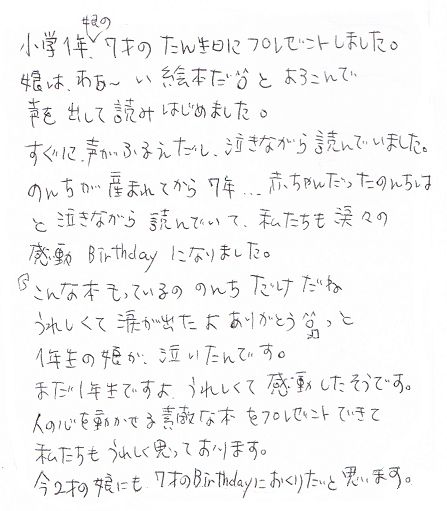 娘の
小学1年、7才の たん生日に プレゼントしました。
娘は、わあ〜 い 絵本だ と よろこんで
声を 出して 読み はじめました。
すぐに、声が ふるえだし、泣きながら 読んでいました。
のんちが 産まれてから 7年... 赤ちゃんだったのんちは
と 泣きながら 読んでいて、私たちも 涙々の
感動 Birthday に なりました。
こんな本 もっているの のんち だけ だね
うれしくて 涙が出たよ ありがとう っと
1年生の 娘が、泣いたんです。
まだ1年生ですよ うれしくて 感動 したそうです。
人の心を動かせる 素敵な本 を プレゼント できて
私たちも うれしく思って おります。
今2才の 娘にも、7才のBirthdayに おくりたいと 思います。